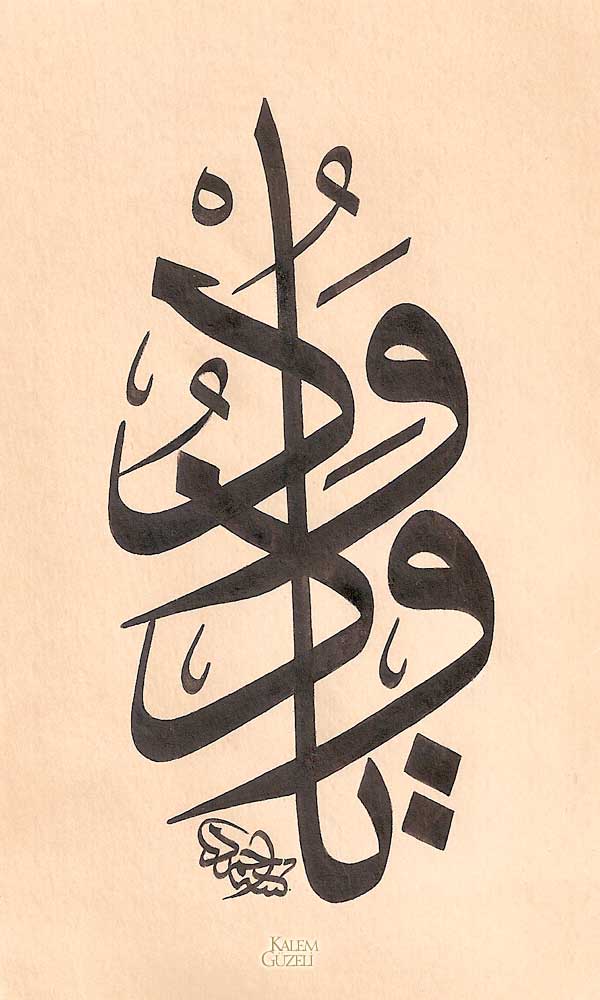 يَا وَدُوْدُ
KALEM
GÜZELİ